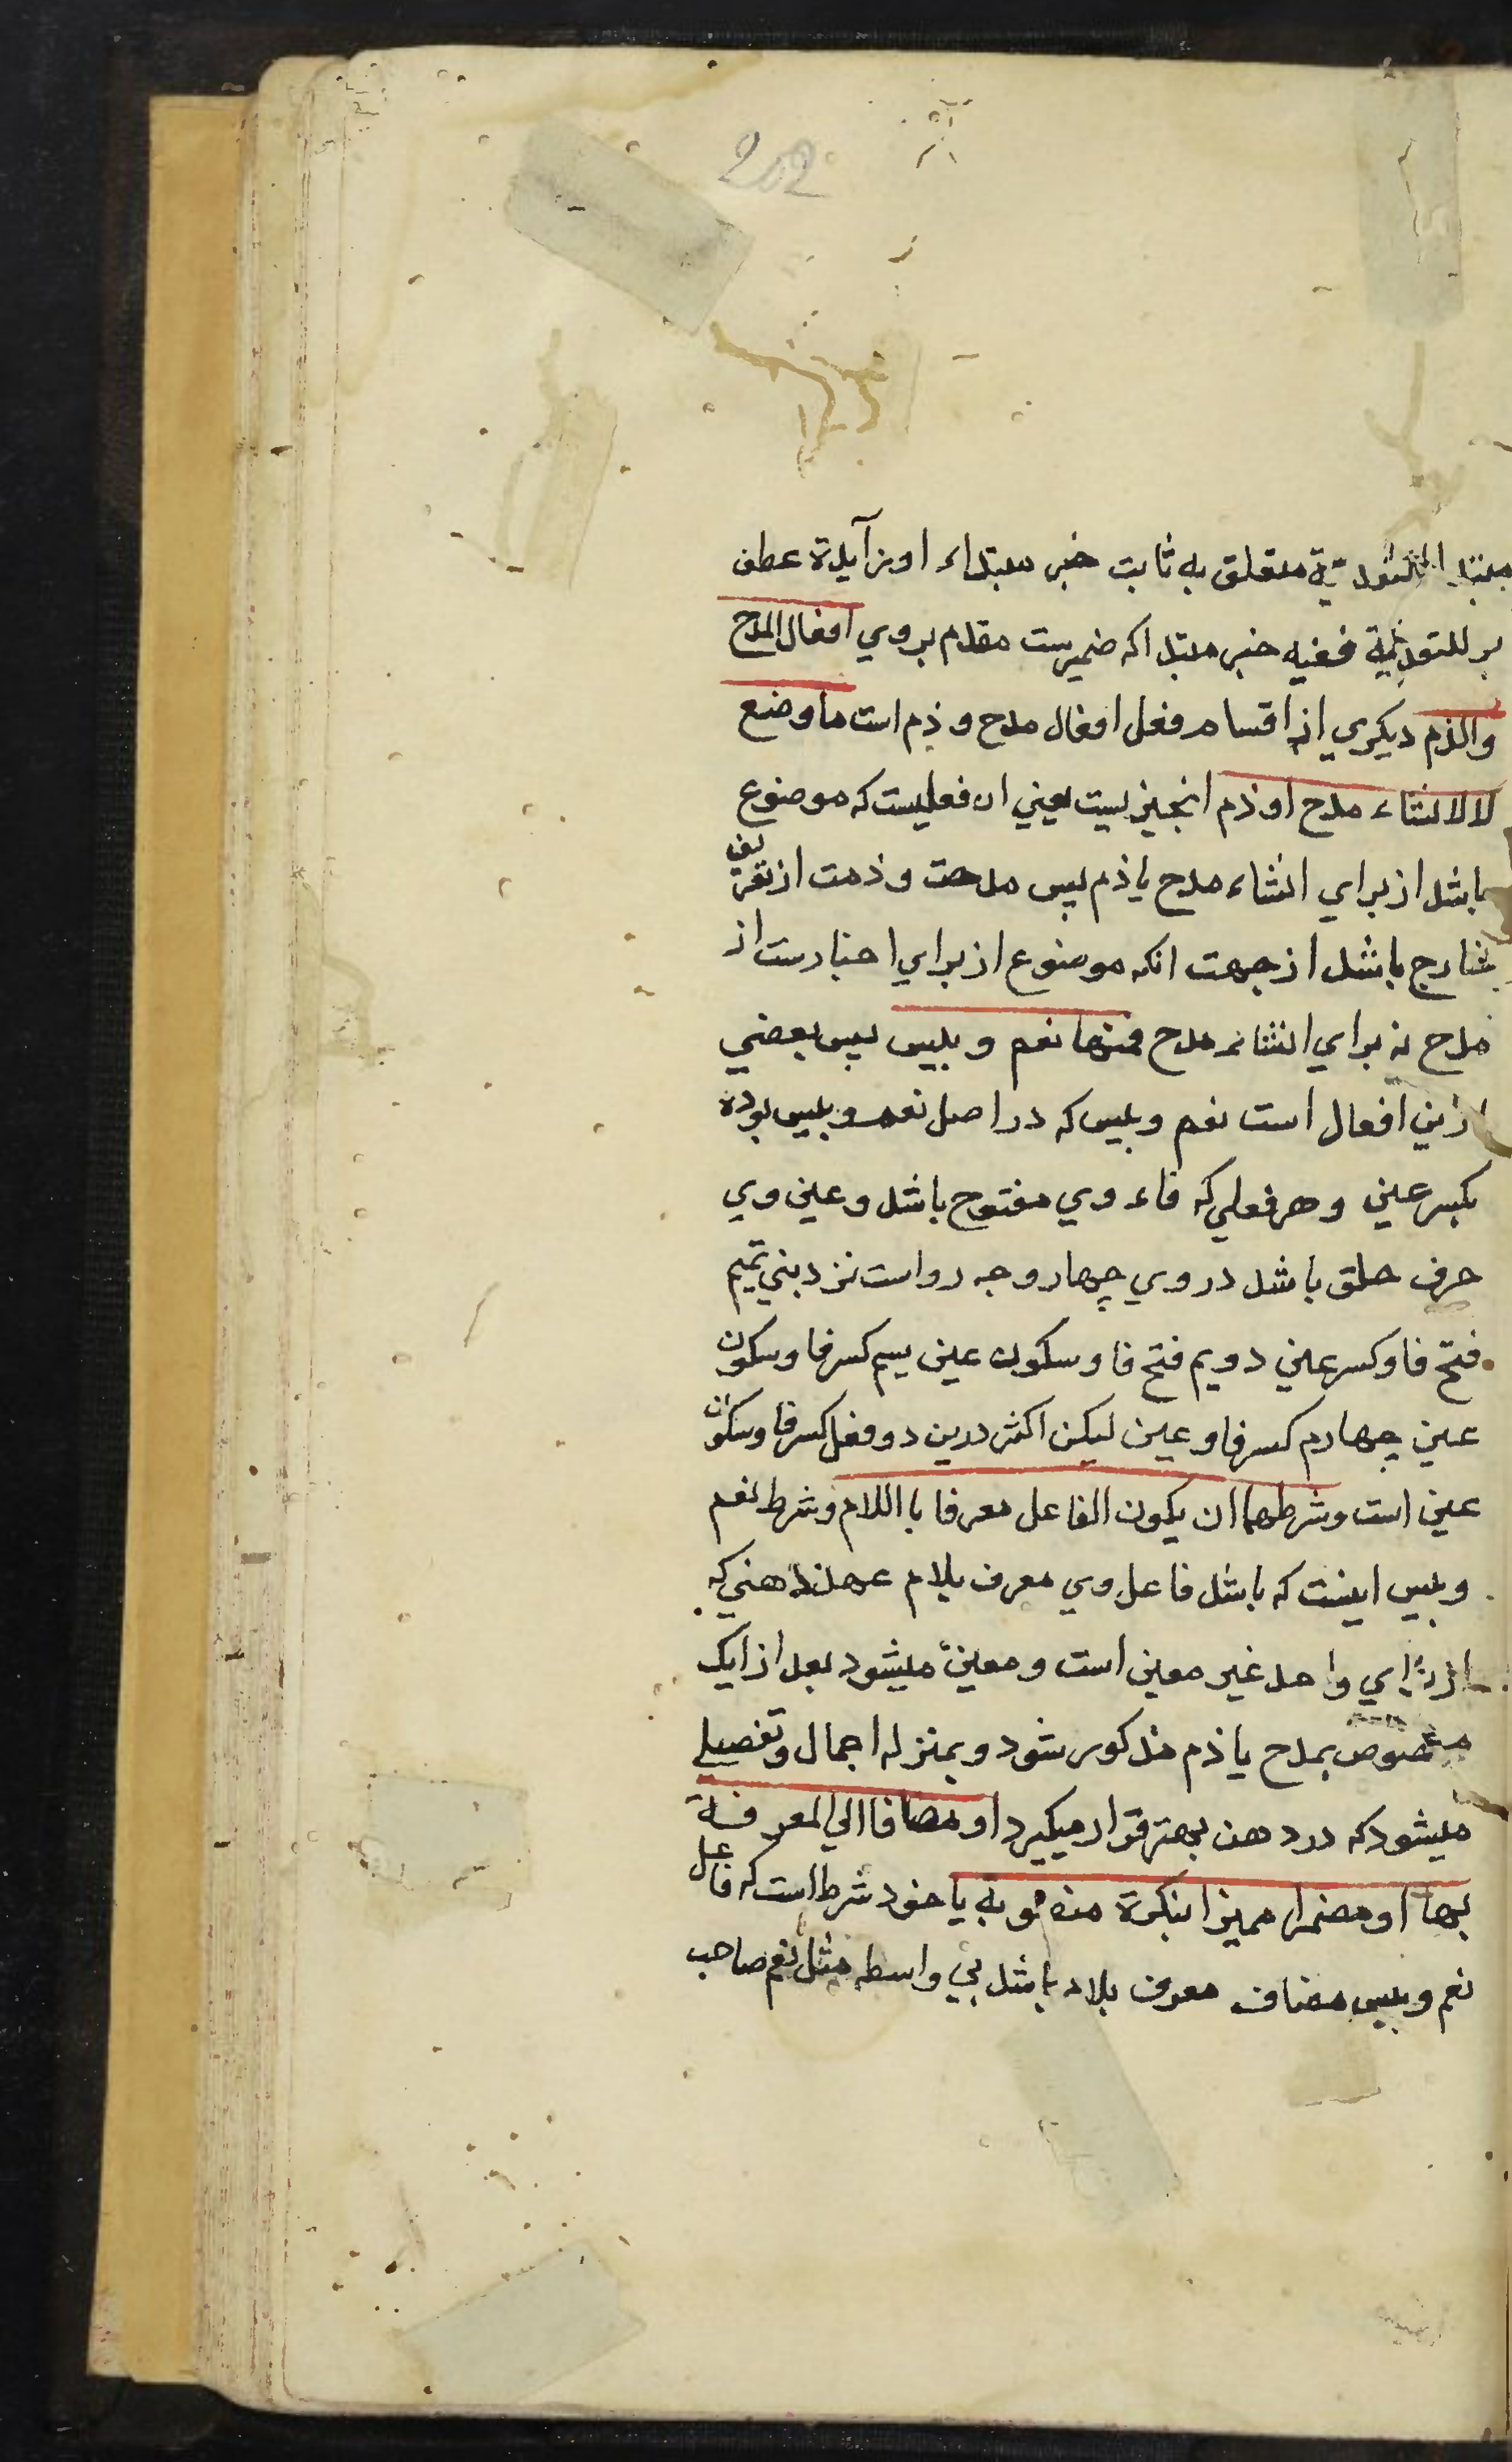 202
مبتدا للتعدية متعلق به ثابت خبر مبتداء او زآيدة عطف
بر للتعدية ففيه خبر مبتدا كه ضميرست مقدم بروي افعال المدح
والذم ديكري از اقسام فعل افعال مدح و ذم است ما وضع
لا لانشاء مدح او ذم انچيزيست يعني ان فعليست كه موضوع
باشد از براي انشاء مدح يا ذم پس مدحت و ذمت از تعريف
خارج باشد از جهت انكه موضوع از براي اخبارست از
مدح نه براي انشاء مدح فمنها نعم و بئس پس بعضي
ازين افعال است نعم وبيس كه در اصل نعم و بيس بوده
بكسر عين و هر فعلي كه فاء وي مفتوح باشد و عين وي
حرف حلق باشد در وي چهار وجه رواست نزد بني تميم
فتح فا و كسر عين دويم فتح فا و سكون عين سيم كسر فا و سكون
عين چهارم كسر فا و عين ليكن اكثر درين دو فعل كسر فا و سكون
عين است وشرطهما ان يكون الفاعل معرفا با اللام و شرط نعم
وبيس اينست كه باشد فاعل وي معرف بلام عهد ذهني كه
از براي واحد غير معين است و معين ميشود بعد از انك
مخصوص بمدح يا ذم مذكور شود و بمنزله اجمال و تفصيلے
ميشود كه در ذهن بهتر قرار ميكيرد او مضافا الي المعرفة
بها او مضمرا مميزا بنكرة منصوبة يا خود شرط است كه فاعل
نعم وبيس مضاف معرف بلام باشد بي واسطه مثل نعم صاحب